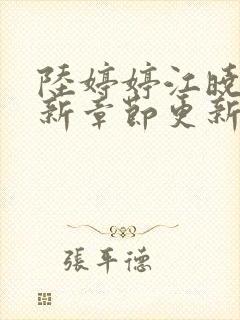 陸婷婷江曉
新章節更新
張平德